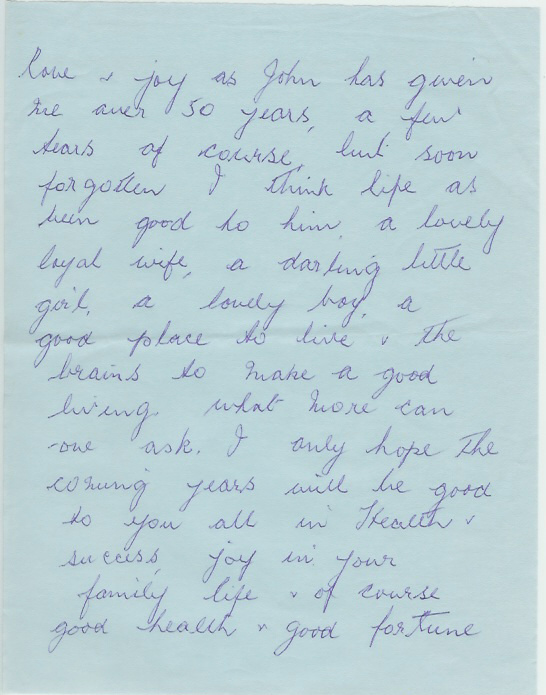 love & joy as John has given
me over 50 years, a few
tears of course, but soon
forgotten I think life as
been good to him, a lovely
loyal wife, a darling little
girl, a lovely boy, a
good place to live & the
brains to make a good
living. what more can
one ask. I only hope the
coming years will be good
to you all in Health &
success, joy in your
family life & of course
good health & good fortune